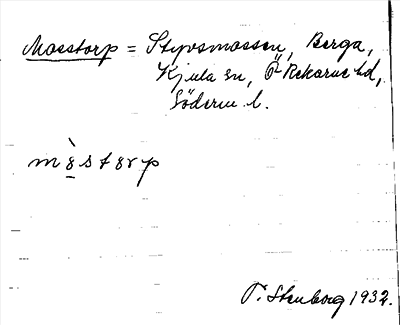 Mosstorp = Styvsmossen, Berga,
Kjula sn, Ö Rekarne hd,
Söderm l.
m8̀st8rp
P. Stenborg 1932.